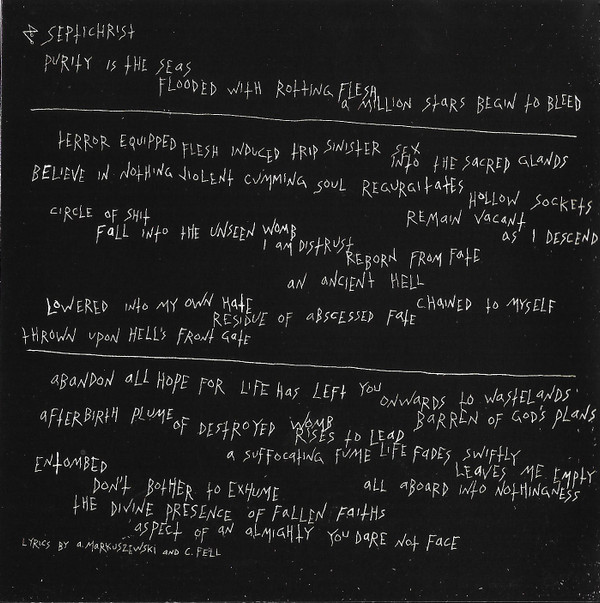 SEPTICHRIST
PURITY IS THE SEAS
FLOODED WITH ROTTING FLESH
A MILLION STARS BEGIN TO BLEED
TERROR EQUIPPED FLESH INDUCED TRIP SINISTER SEX
INTO THE SACRED GLANDS
BELIEVE IN NOTHING VIOLENT CUMMING SOUL REGURGITATES
HOLLOW SOCKETS
CIRCLE OF SHIT REMAIN VACANT
FALL INTO THE UNSEEN WOMB AS I DESCEND
I AM DISTRUST
REBORN FROM FATE
AN ANCIENT HELL
LOWERED INTO MY OWN HATE CHAINED TO MYSELF
RESIDUE OF ABSCESSED FATE
THROWN UPON HELL'S FRONT GATE
ABANDON ALL HOPE FOR LIFE HAS LEFT YOU
ONWARDS TO WASTELANDS
AFTERBIRTH PLUME OF DESTROYED WOMB BARREN OF GOD'S PLANS
RISES TO LEAD
A SUFFOCATING FUME LIFE FADES SWIFTLY
ENTOMBED LEAVES ME EMPTY
DON'T BOTHER TO EXHUME ALL ABOARD INTO NOTHINGNESS
THE DIVINE PRESENCE OF FALLEN FAITHS
ASPECT OF AN ALMIGHTY YOU DARE NOT FACE
LYRICS BY A. MARKUSZEWSKI AND C. FELL